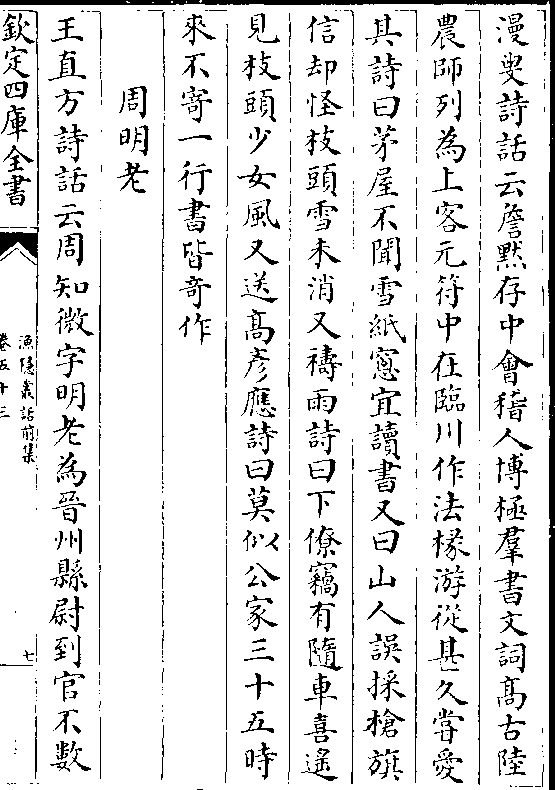 漫叟詩話云詹黙存中會稽人博極羣書文詞髙古陸
農師列為上客元符中在臨川作法椽游從甚久嘗愛
其詩曰茅屋不聞雪紙窻宜讀書又曰山人誤採槍旗
信却怪枝頭雪未消又禱雨詩曰下僚竊有隨車喜遙
見枝頭少女風又送髙彦應詩曰莫似公家三十五時
來不寄一行書皆竒作
周明老
王直方詩話云周知微字明老為晉州縣尉到官不數
欽定四庫全書
漁隱叢話前集
卷五十三
七